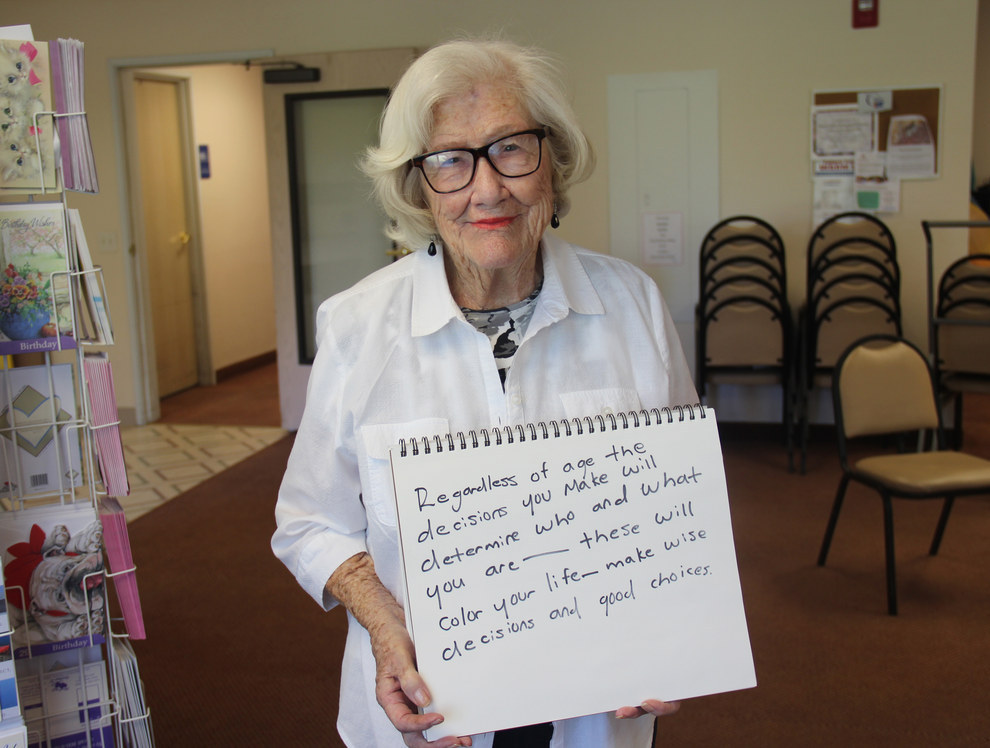 Birthday Wishes
Birthday
Birthday
Regardless of age the
decisions you make will
determine who and what
you are — these will
color your life — make wise
decisions and good choices.